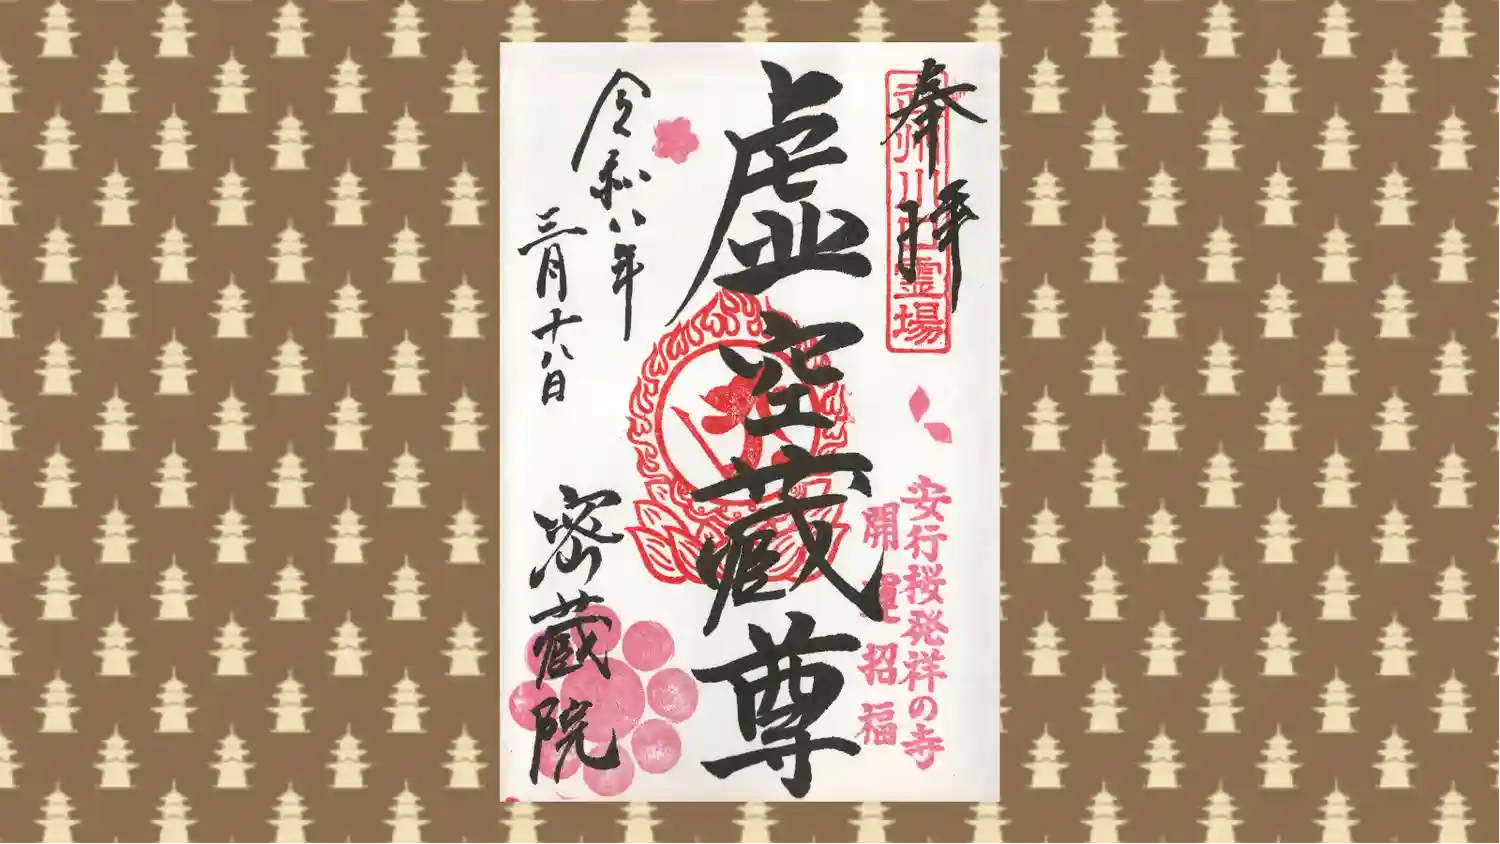 奉拝
霊場
安行桜発祥の寺
開運招福
虚空蔵尊
令和八年
三月十八日
密蔵院